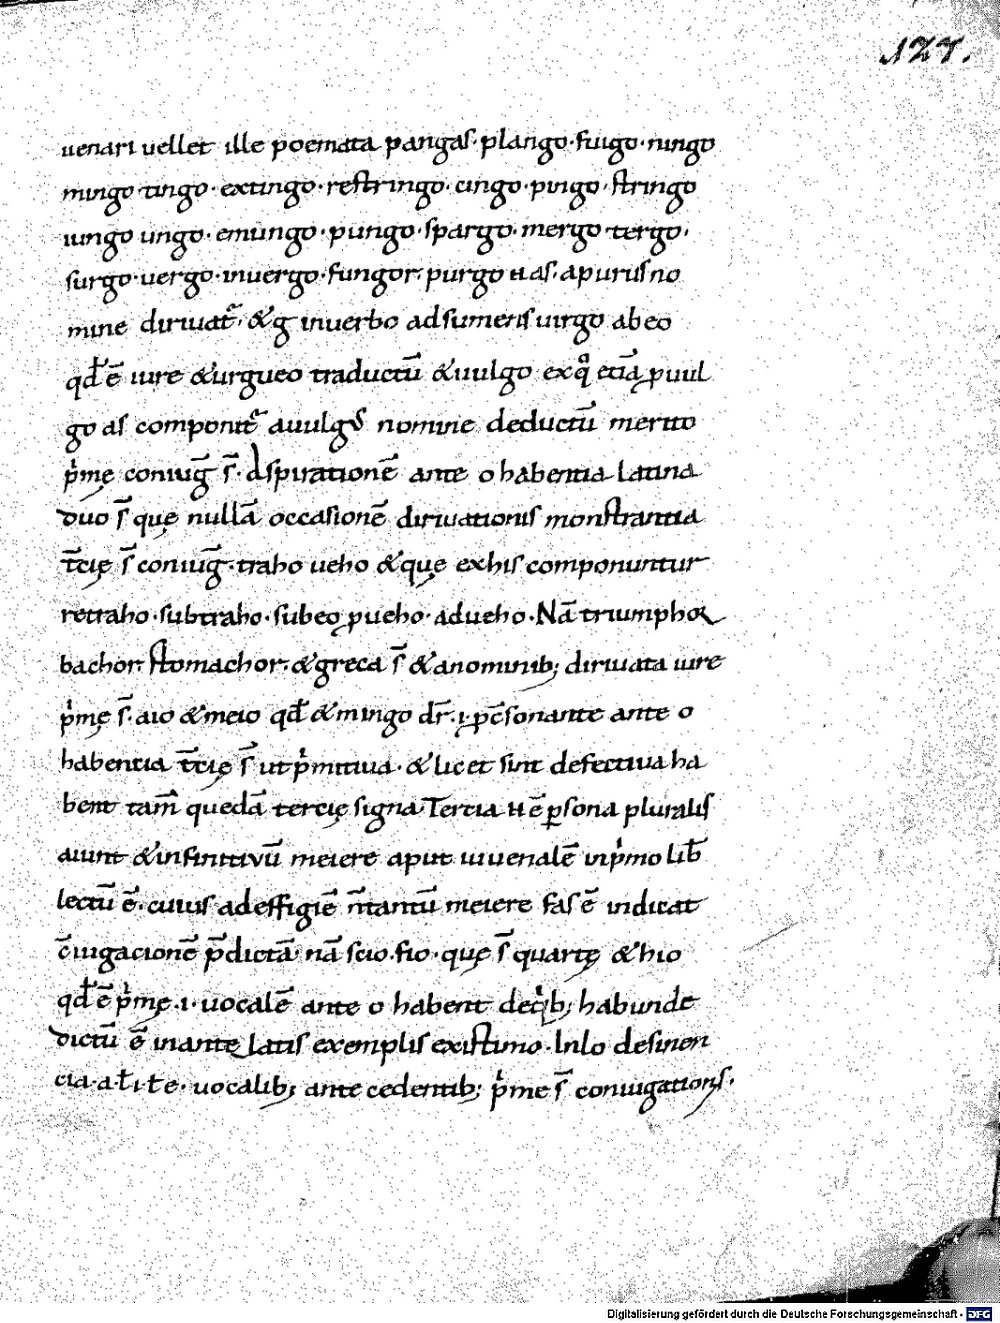 127.
uenari uellet ille poemata pangas· plango· fuigo· ningo
mingo tingo· extingo· restringo· cingo· pingo· stringo
iungo ungo· emungo· pungo· spargo· mergo tergo·
surgo· uergo· inuergo· fungor· purgo n̄ as· a purus no
mine diriuat̄· & g in uerbo adsumens uirgo ab eo
qđ ē iure & urgueo traductū & uulgo ex q̊ eciā ꝑuul
go as componit̄ a uulgꝰ nomine deductū merito
p̍mę coniug̅ s̄· Aspirationē ante o habentia latina
duo s̄ quę nullā occasionē diriuationis monstrantia
t̄cię s̄ coniug̅· traho ueho & quę ex his componuntur
retraho· subtraho· subeo ꝑueho· adueho· Nā triumphoꝝ
bachor· stomachor· & greca s̄ & a nominib; diriuata iure
p̍mę s̄· aio & meio qđ & mingo dr̄· i· ꝑ c̄sonante ante o
habentia t̄cię s̄ ut p̍mitiua· & licet sint defectiua ha
bent tam̄ quedā tercię signa· Tertia n̄ ē ꝑsona pluralis
aiunt & infinitivū meiere aput iuuenalē in p̍mo lib̄
lectū ē· cuius ad effigiē n̄ tantū meiere fas ē indicat
c̄iugacionē p̄dictā· nā scio· fio· quę s̄ quartę & hio
qđ ē p̍mę· i· uocalē ante o habent de q̍b; habunde
dictū ē in ante latis exemplis existimo· In lo desinen
cia· a ł i ł e· uocalib; ante cedentib; p̍me s̄ coniugationis·
Digitalisierung gefördert durch die Deutsche Forschungsgemeinschaft - DFG